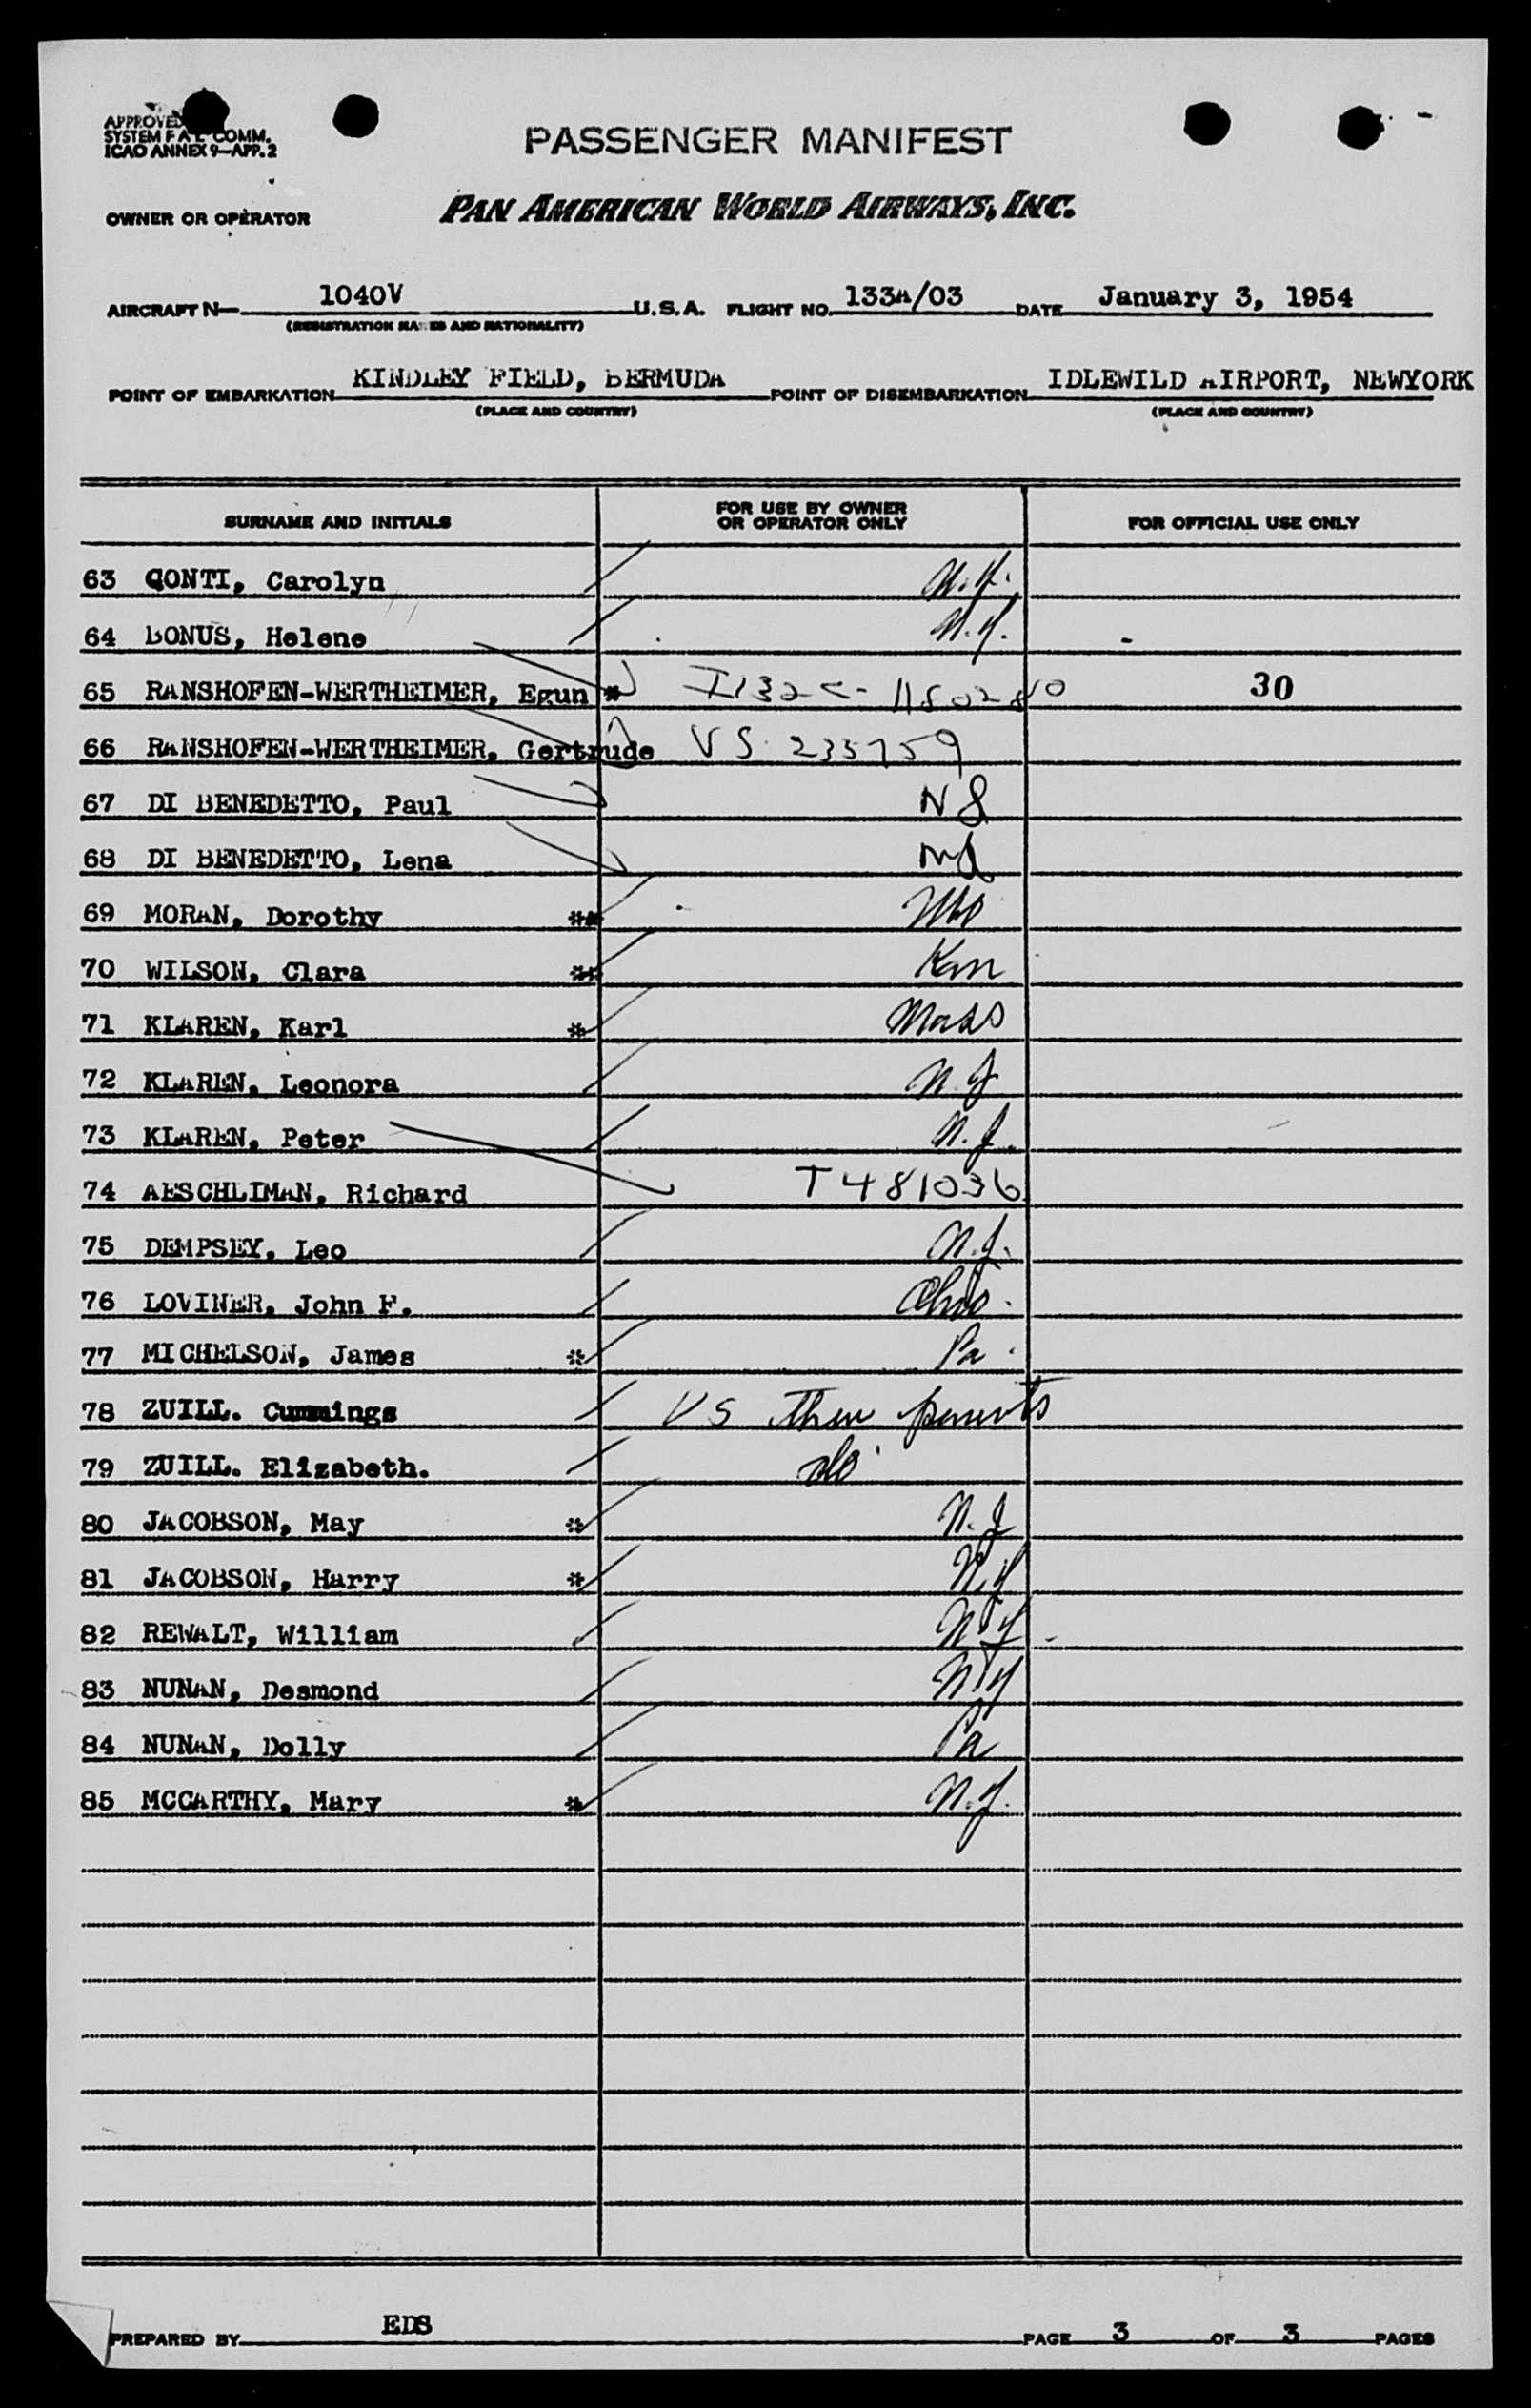 APPROVED
SYSTEM FAL COMM.
ICAO ANNEX 9—APP. 2
PASSENGER MANIFEST
OWNER OR OPERATOR PAN AMERICAN WORLD AIRWAYS, INC.
AIRCRAFT N— 1040V U.S.A. FLIGHT NO. 133A/03 DATE January 3, 1954
(REGISTRATION MARKS AND NATIONALITY)
POINT OF EMBARKATION KINDLEY FIELD, BERMUDA POINT OF DISEMBARKATION IDLEWILD AIRPORT, NEWYORK
(PLACE AND COUNTRY) (PLACE AND COUNTRY)
SURNAME AND INITIALS FOR USE BY OWNER OR OPERATOR ONLY FOR OFFICIAL USE ONLY
63 CONTI, Carolyn N.Y.
64 BONUS, Helene N.Y.
65 RANSHOFEN-WERTHEIMER, Egun * I132 30
66 RANSHOFEN-WERTHEIMER, Gertrude VS 235759
67 DI BENEDETTO, Paul
68 DI BENEDETTO, Lena
69 MORAN, Dorothy **
70 WILSON, Clara ** Kan
71 KLAREN, Karl * Mass
72 KLAREN, Leonora N.J
73 KLAREN, Peter N.J.
74 AESCHLIMAN, Richard T481036
75 DEMPSEY, Leo N.J.
76 LOVINER, John F. Ohio.
77 MICHELSON, James * Pa.
78 ZUILL. Cummings VS thru parents
79 ZUILL. Elizabeth. do
80 JACOBSON, May * N.J
81 JACOBSON, Harry * N.Y
82 REWALT, William N.Y
83 NUNAN, Desmond N.Y
84 NUNAN, Dolly Pa
85 MCCARTHY, Mary * N.Y.
PREPARED BY EDS PAGE 3 OF 3 PAGES